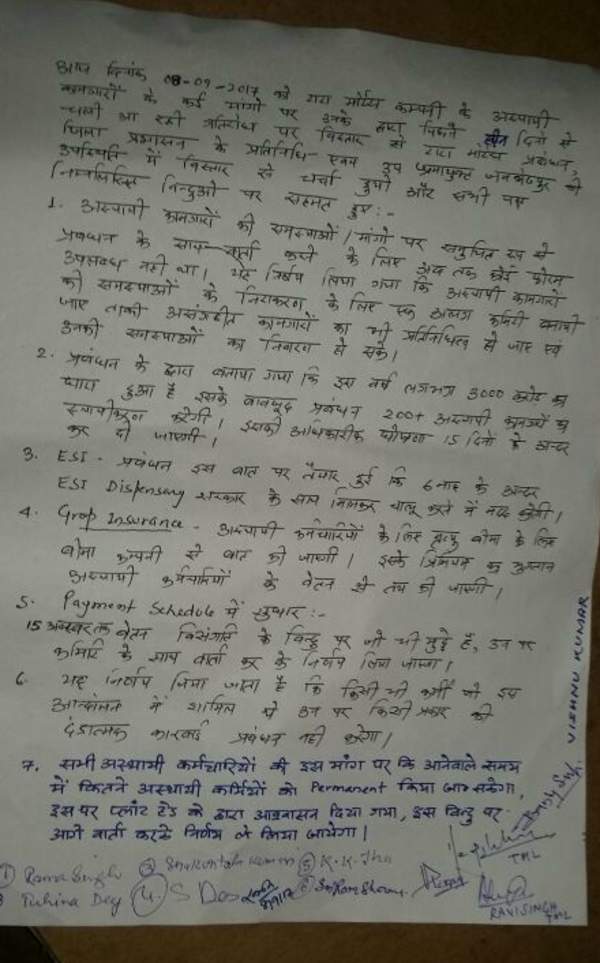 आज दिनांक 08-09-2017 को टाटा मोटर्स कम्पनी के अस्थायी
कामगारों के कई मांगो पर उनके द्वारा पिछले तीन दिनों से
चली आ रही गतिरोध पर विस्तार से टाटा मोटर्स प्रबंधन,
जिला प्रशासन के प्रतिनिधि एवम उप श्रमायुक्त जमशेदपुर की
उपस्थिति में विस्तार से चर्चा हुयी और सभी पक्ष
निम्नलिखित बिन्दुओं पर सहमत हुए:-
1. अस्थायी कामगारों की समस्याओं/मांगो पर समुचित रूप से
प्रबंधन के साथ वार्ता करने के लिए अब तक कोई फोरम
उपलब्ध नहीं था। यह निर्णय लिया गया कि अस्थायी कामगारों
की समस्याओं के निराकरण के लिए एक अलग कमिटी बनायी
जाए ताकी असंगठीत कामगारों का भी प्रतिनिधित्व हो जाए एवं
उनकी समस्याओं का निवारण हो सके।
2. प्रबंधन के द्वारा बताया गया कि इस वर्ष लगभग 3000 करोड़ का
घाटा हुआ है इसके बावजूद प्रबंधन 200+ अस्थायी कामगारों का
स्थायीकरण करेगी। इसकी अधिकारीक घोषणा 15 दिनों के अन्दर
कर दी जाएगी।
3. ESI - प्रबंधन इस बात पर तैयार हुई कि 6 माह के अन्दर
ESI Dispensary सरकार के साथ मिलकर चालू करने में मदद करेगी।
4. Grop Insurance - अस्थायी कर्मचारियों के लिए मृत्यु बीमा के लिए
बीमा कम्पनी से बात की जाएगी। इसके प्रिमियम का भुगतान
अस्थायी कर्मचारियों के वेतन से तय की जाएगी।
5. Payment Schedule में सुधार:-
15 अक्टूबर तक वेतन विसंगति के बिन्दु पर जो भी मुद्दे है, उन पर
कमिटि के साथ वार्ता कर के निर्णय लिया जाएगा।
6. यह निर्णय लिया जाता है कि किसी भी कर्मी जो इस
आन्दोलन में शामिल थे उन पर किसी प्रकार की
दंडात्मक कारवाई प्रबंधन नहीं करेगा।
7. सभी अस्थायी कर्मचारियों की इस मांग पर कि आनेवाले समय
में कितने अस्थायी कर्मियों को Permanent किया जा सकेगा,
इस पर प्लांट हेड के द्वारा आश्वासन दिया गया, इस बिन्दु पर
आगे वार्ता करके निर्णय ले लिया जायेगा।
VISHNU KUMAR
TML
① Rama Singh ③ Shakuntala Kumari ⑤ K.K. Jha
Tuhina Dey ④ S Das
RAVI SINGH
TML